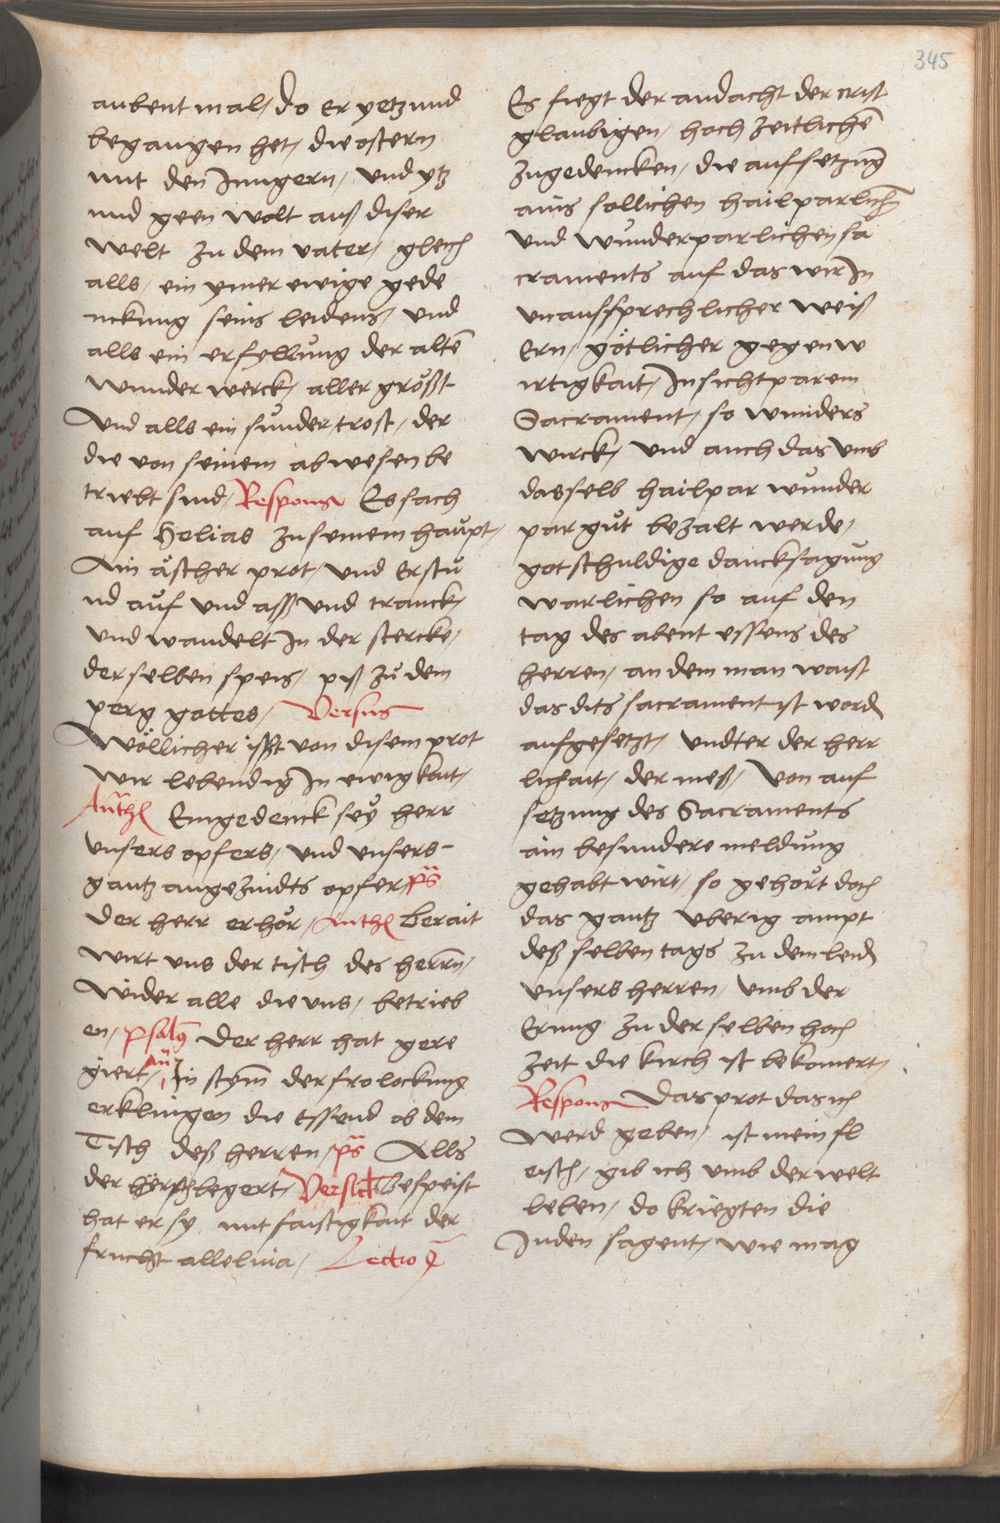 345
aubent mal / do er yetzund
begangen het / die ostern
mit den Jungern / und ytz
und geen wolt auß diser
welt zu dem vater / gleich
alls / ein ymer ewige gede
nckung seins leidens / und
alls ein erfellung der altē
wunder werck / aller größt
Vnd alls ein sunder trost / der
die von seinem abwesen be
triebt sind / Respons Es sach
auf Helias zu seinem haupt /
Ain äscher prot / und erstů
nd auf und asß und tranck /
und wandelt In der stercke /
der selben speis / piß zů dem
perg gottes / Versus
Wöllicher isßt von disem prot
wir lebendig In ewigkait /
Anth Eingedenck sey herr
unsers opfers / und unsers
gantz angezindts opfer ps
Der herr erhör / Anth Berait
wirt uns der tisch des herrn /
wider alle die uns / betrieb
en / psalm Der herr hat gere
giert / an In stym der frolockung
erklingen die Essend ob dem
Tisch deß herren / ps Alls
der legert / Versick Bespeist
hat er sy mit faistigkait der
frucht alleluia / Lectio
Es fiegt der andacht der crist
glaubigen / hoch zeitlichē
zugedencken / die aufsetzung
ains sollichen hailparlichen
und wunderparlichen sa
craments auf das wir In
unaussprechlicher weiß
Ern / götlicher gegenw
irtigkait / In sichtparem
Sacrament / so wunders
wirck / und auch das umb
dasselb hailpar wunder
par gůt bezalt werde /
got schuldige dancksagung
warlichen so auf den
tag des abent essens des
herren / an dem man waist
das dits sacrament ist word
aufgesetzt / undter der herr
lichait / der meß / von auf
setzung des Sacraments
ain besundere meldung
gehabt wirt / so gehört doch
das gantz uberig ampt
deß selben tags zu dem leid
unsers herren / umb der
Erung zu der selben hoch
zeit die kirch ist bekomert /
Respons Das prot das ich
werd geben / ist mein fl
eisch / gib ich umb der welt
leben / do kriegten die
Juden sagent / wie mag